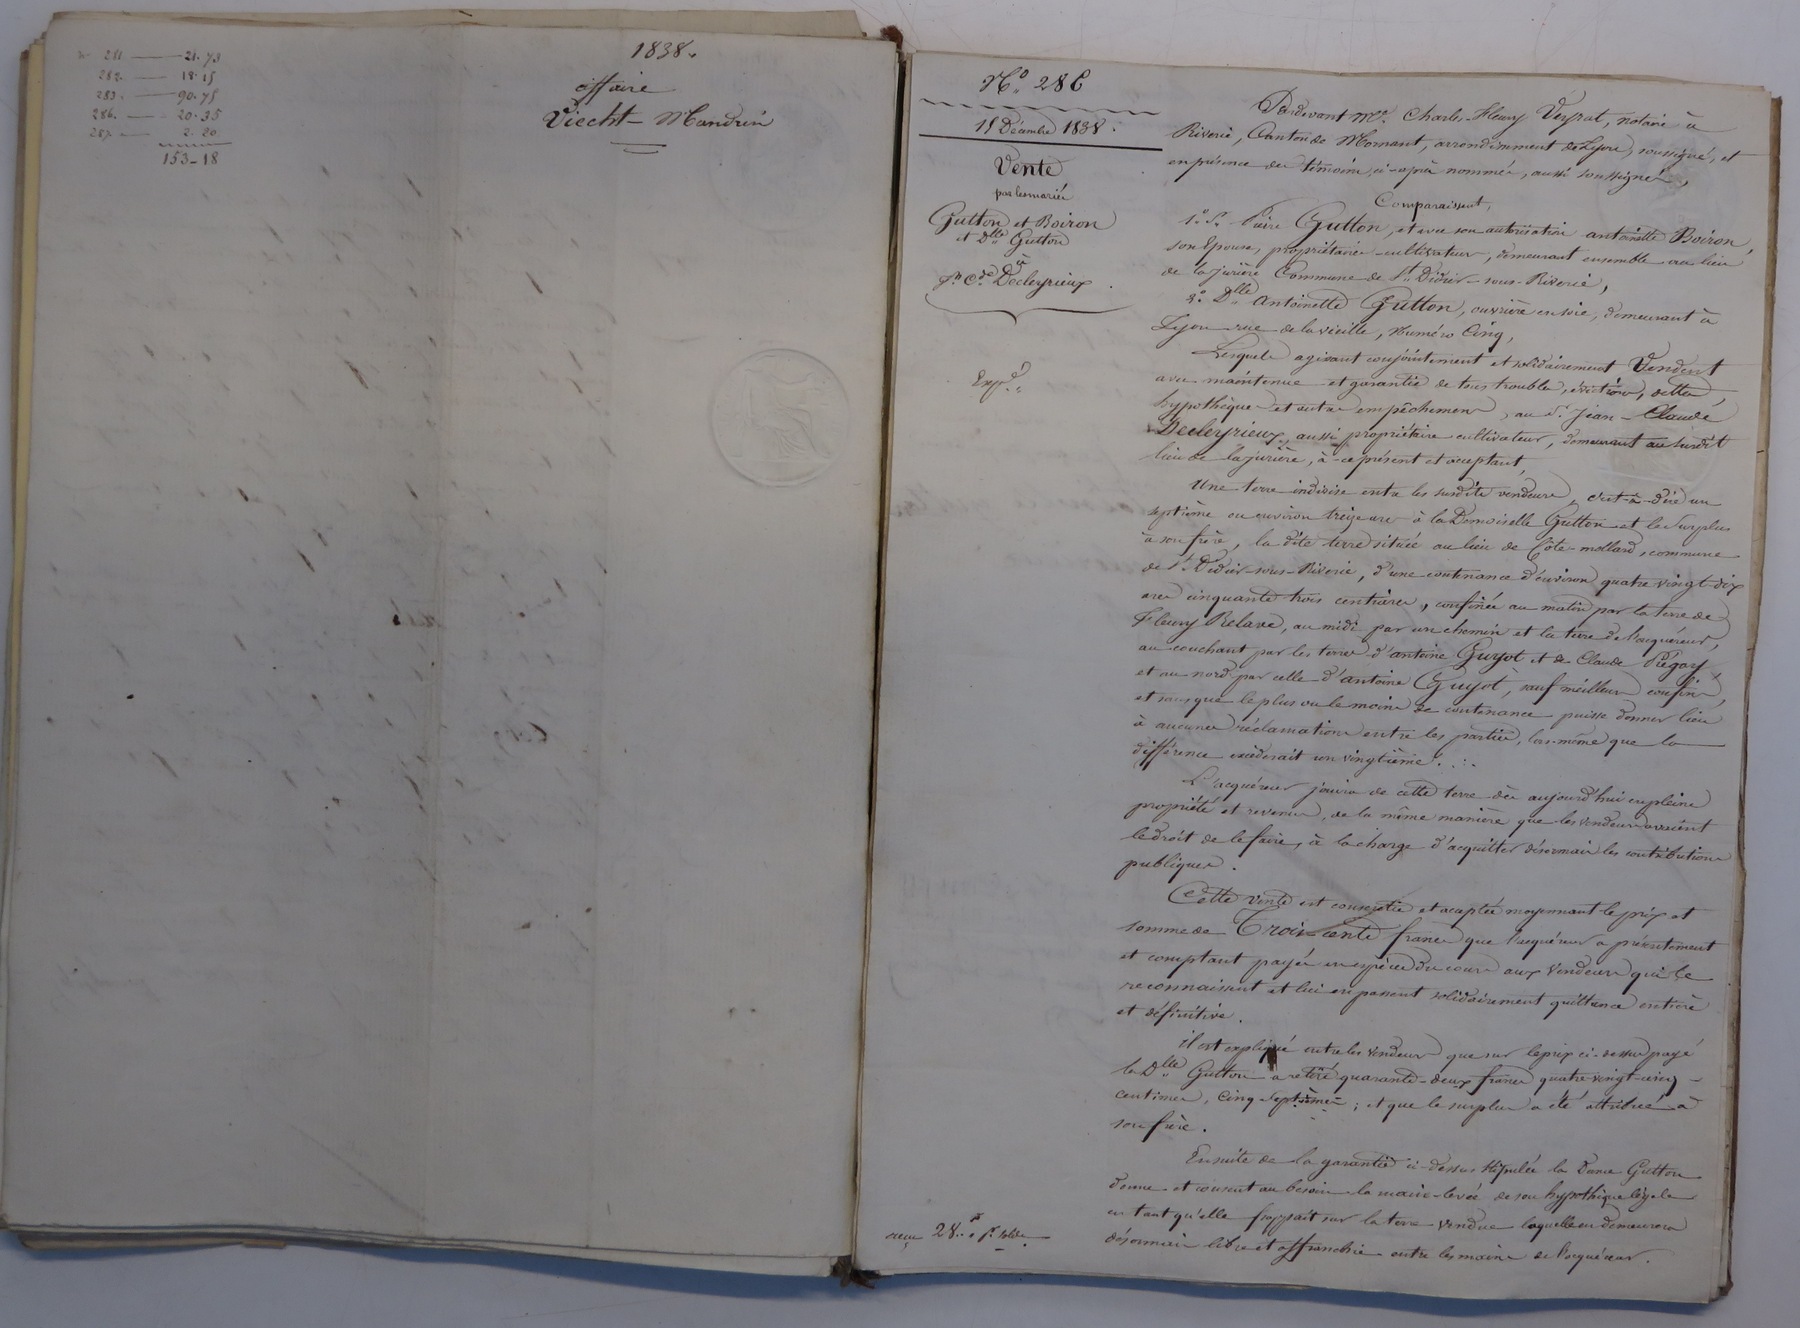 n° 281 — 21.73
282. — 18.15
283. — 90.75
286. — 20.35
287. — 2.20
153-18
1838.
affaire
Viecht - Mandrin
N° 286
15 Décembre 1838.
Vente
par les mariés
Gutton et Boiron
et Dlle Gutton
à
Jn Cde Decleyrieux
Expé.
reçu 28.
Pardevant Me Charles-Fleury Veyrat, notaire à
Riverie, Canton de Mornant, arrondissement de Lyon, soussigné, et
en présence des témoins ci-après nommés, aussi soussignés,
Comparaissent,
1° Sr Pierre Gutton, et avec son autorisation antoinette Boiron,
son Epouse, propriétaires-cultivateurs, demeurant ensemble au lieu
de la jurière Commune de St Didier-sous-Riverie,
2° Dlle antoinette Gutton, ouvrière en soie, demeurant à
Lyon rue de la vieille, Numéro Cinq,
Lesquels agissant conjointement et solidairement Vendent
avec maintenue et garantie de tous troubles, évictions, dettes,
hypothèques et autres empêchemens, au Sr Jean-Claude
Decleyrieux, aussi propriétaire cultivateur, demeurant au susdit
lieu de la jurière, à ce présent et acceptant,
Une terre indivise entre les susdits vendeurs, c'est-à-dire un
septième ou environ treize ares à la Demoiselle Gutton et le Surplus
à son frère, la dite terre située au lieu de Côte-mollard, commune
de St Didier-sous-Riverie, d'une contenance d'environ quatre vingt-dix
ares cinquante trois centiares, confinée au matin par la terre de
Fleury Relave, au midi par un chemin et la terre de l'acquéreur,
au couchant par les terres d'antoine Guyot et de Claude Piégay,
et au nord par celle d'antoine Guyot, sauf meilleurs confins,
et sans que le plus ou le moins de contenance puisse donner lieu
à aucunes réclamations entre les parties, lors-même que la
différence excéderait un vingtième.
L'acquéreur jouira de cette terre dès aujourd'hui en pleine
propriété et revenus, de la même manière que les vendeurs avaient
le droit de le faire, à la charge d'acquitter désormais les contributions
publiques.
Cette vente est consentie et acceptée moyennant le prix et
somme de Trois-cents francs que l'acquéreur a présentement
et comptant payés en espèces du cours aux Vendeurs qui le
reconnaissent et lui en passent solidairement quittance entière
et définitive.
il est expliqué entre les vendeurs que sur le prix ci-dessus payé
la Dlle Gutton a retiré quarante-deux francs quatre vingt-cinq
centimes, cinq septièmes; et que le surplus a été attribué à
son frère.
Ensuite de la garantie ci-dessus stipulée la Dame Gutton
donne et consent au besoin la main-levée de son hypothèque légale
en tant qu'elle frappait sur la terre vendue laquelle en demeurera
désormais libre et affranchie entre les mains de l'acquéreur.